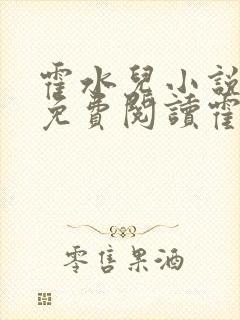 霍水兒小說
免費閱讀霍
零售果酒